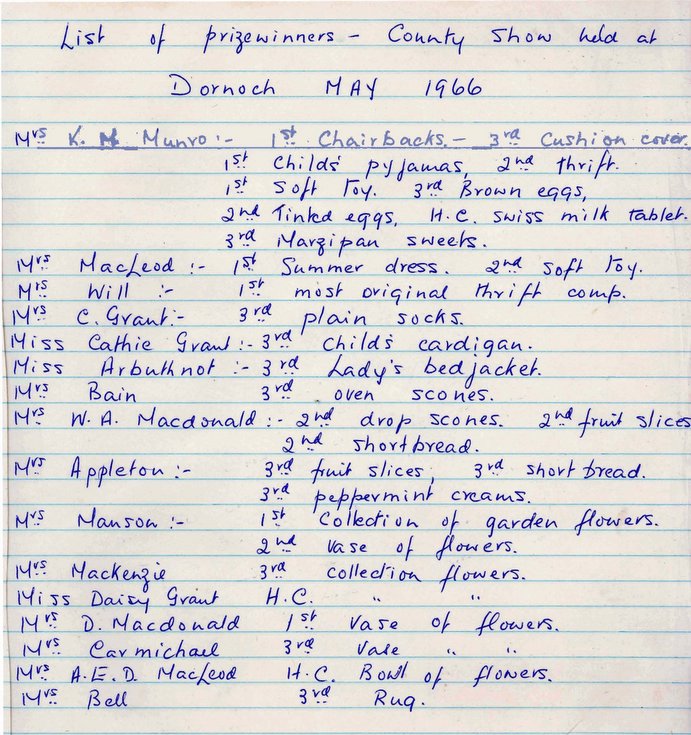 List of prizewinners - County Show held at
Dornoch MAY 1966
Mrs K. M. Munro:- 1st Chairbacks. - 3rd Cushion cover.
1st Child's pyjamas, 2nd thrift.
1st Soft Toy. 3rd Brown eggs,
2nd Tinted eggs, H.C. swiss milk tablet.
3rd Marzipan sweets.
Mrs MacLeod :- 1st Summer dress. 2nd Soft Toy.
Mrs Will :- 1st most original thrift comp.
Mrs C. Grant:- 3rd plain socks.
Miss Cathie Grant:- 3rd child's cardigan.
Miss Arbuthnot :- 3rd Lady's bedjacket.
Mrs Bain 3rd oven scones.
Mrs W. A. Macdonald :- 2nd drop scones. 2nd fruit slices
2nd shortbread.
Mrs Appleton :- 3rd fruit slices, 3rd shortbread.
3rd peppermint creams.
Mrs Manson :- 1st Collection of garden flowers.
2nd vase of flowers.
Mrs Mackenzie 3rd collection flowers.
Miss Daisy Grant H.C. " "
Mrs D. Macdonald 1st vase of flowers.
Mrs Carmichael 3rd Vase " "
Mrs A.E.D. MacLeod H.C. Bowl of flowers.
Mrs Bell 3rd Rug.